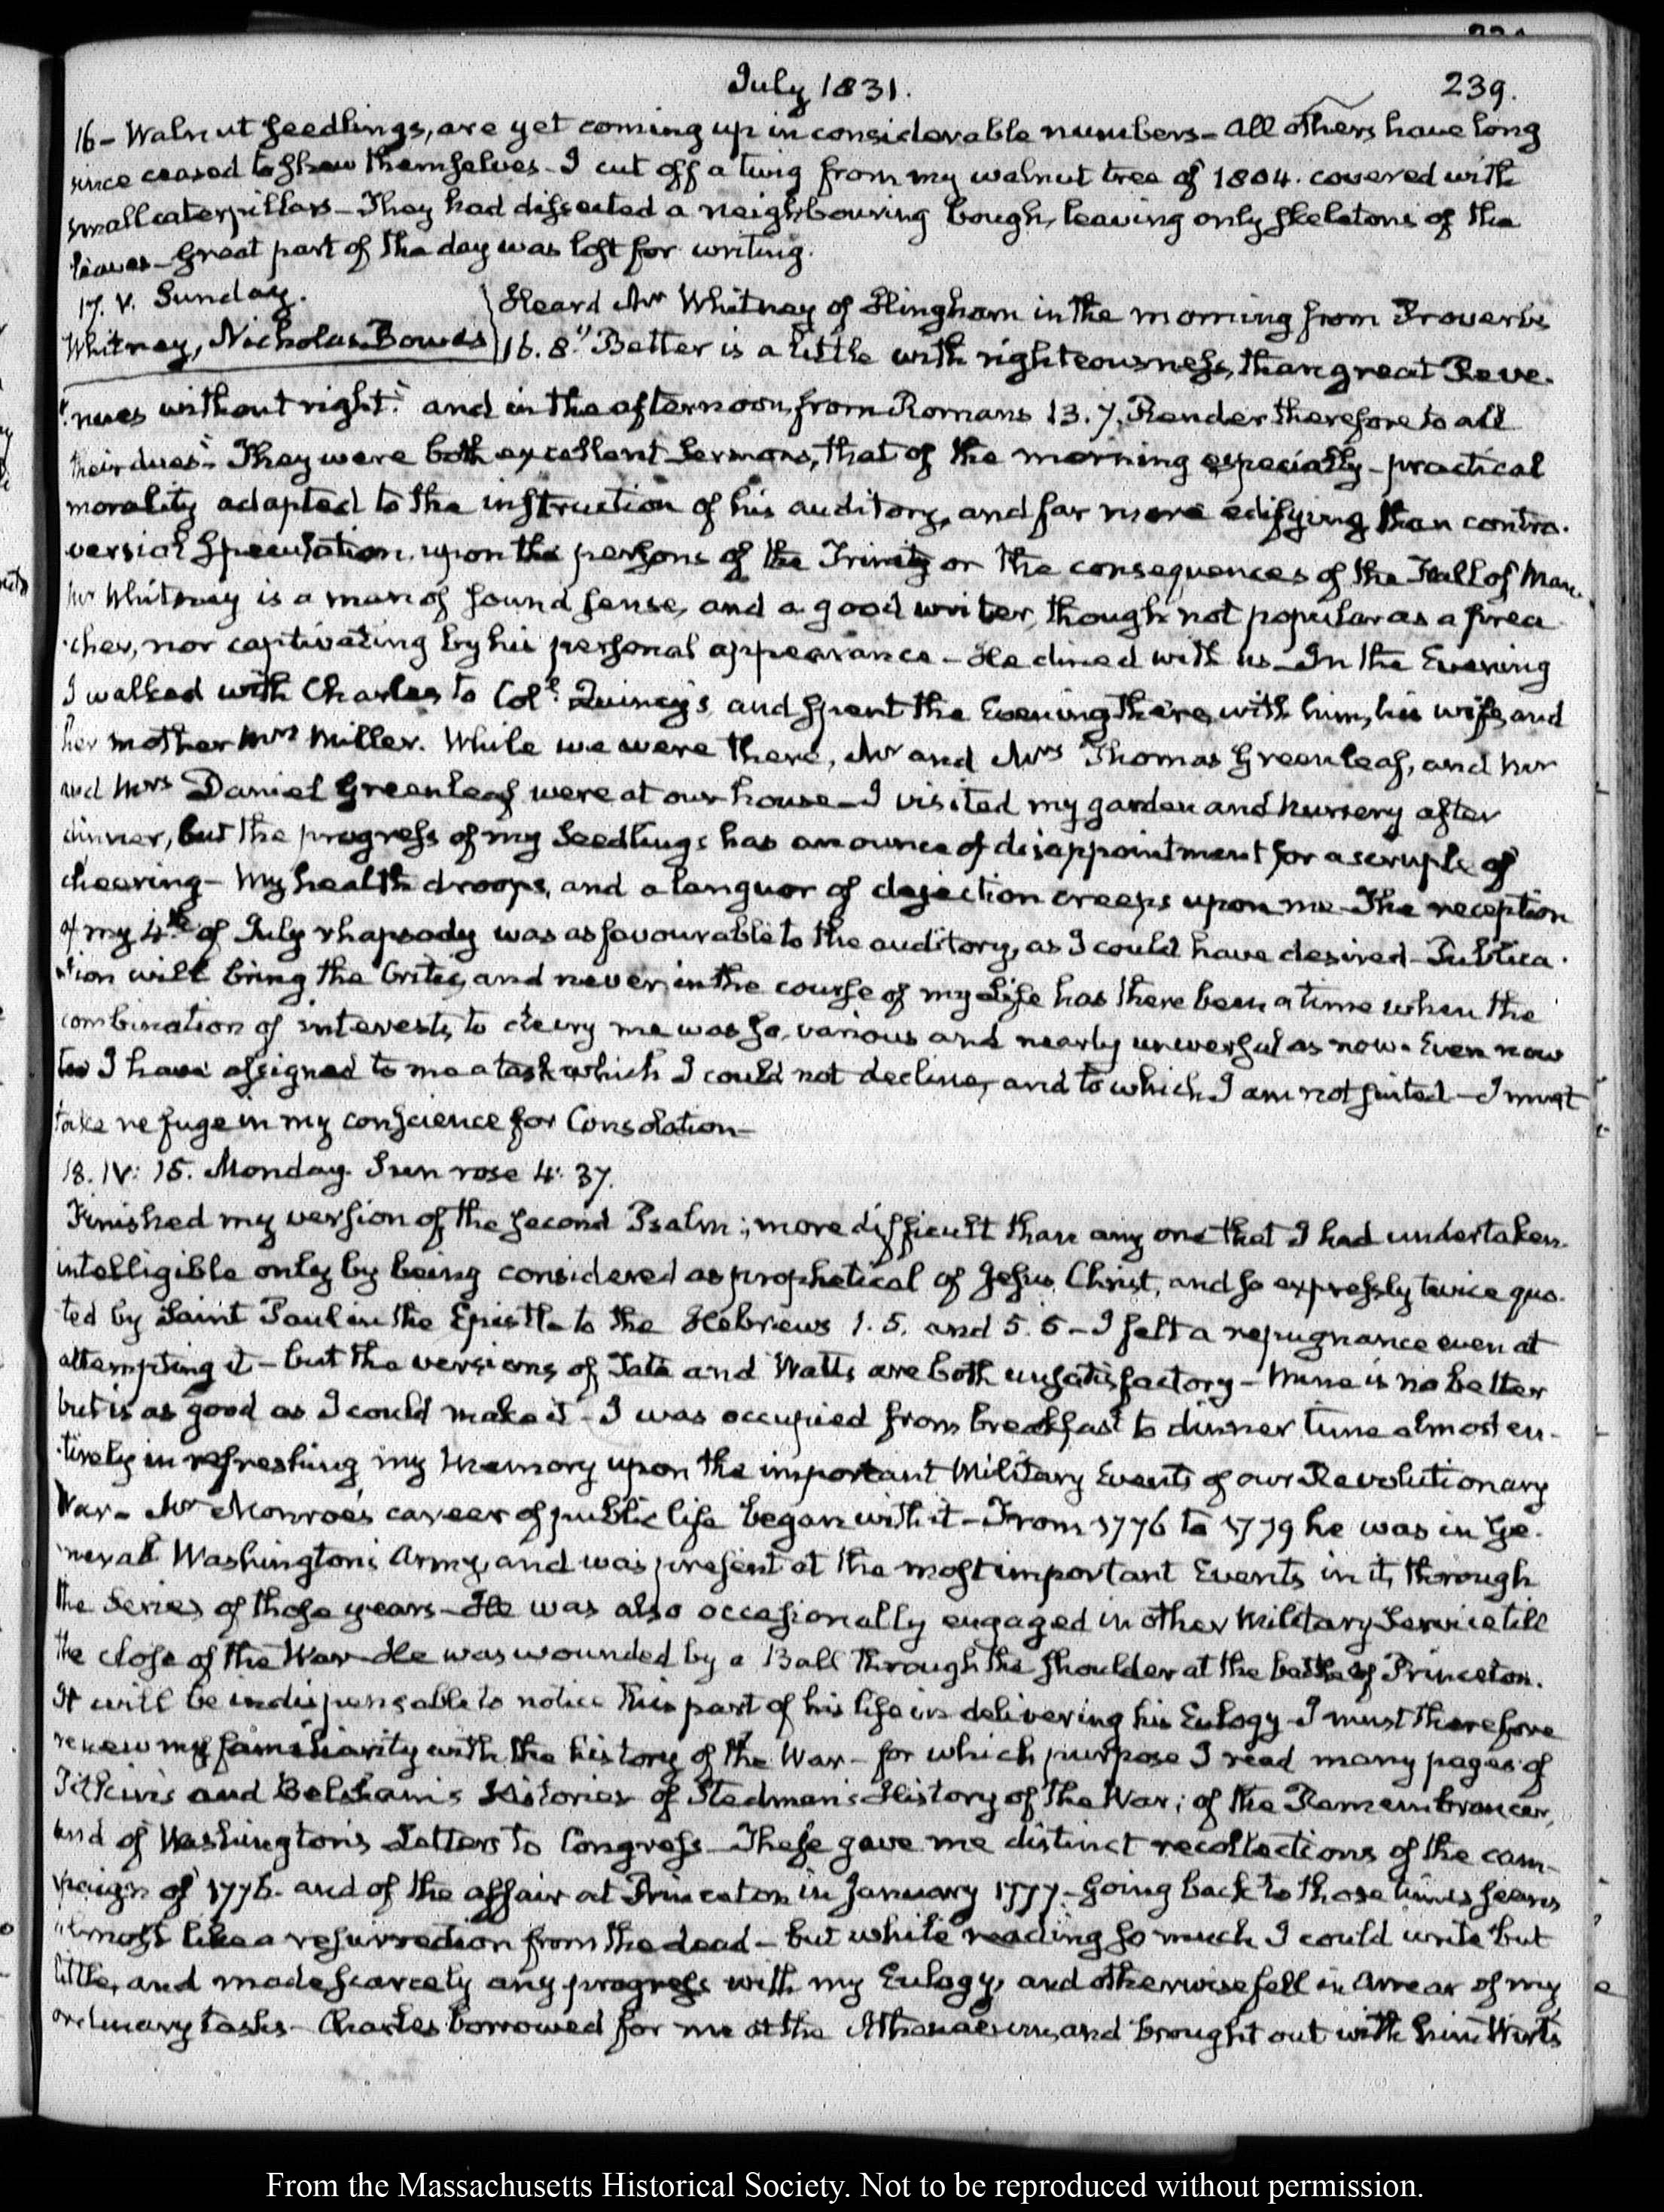 July 1831.
239.
16- Walnut seedlings, are yet coming up in considerable numbers- All others have long
since ceased to shew themselves- I cut off a twig from my walnut tree of 1804. covered with
small caterpillars- They had dissected a neighbouring bough, leaving only skeletons of the
leaves- Great part of the day was lost for writing.
17. V. Sunday.
Whitney, Nicholas Bowes
Heard Mr Whitney of Hingham in the morning from Proverbs
16. 8. "Better is a little with righteousness, than great Reve-
"nues without right." and in the afternoon, from Romans 13. 7. Render therefore to all
their dues"- They were both excellent Sermons, that of the morning especially- practical
morality adapted to the instruction of his auditory, and far more edifying than contro-
versial speculation, upon the persons of the Trinity or the consequences of the Fall of Man.
Mr Whitney is a man of sound sense, and a good writer, though not popular as a prea
-cher, nor captivating by his personal appearance- He dined with us- In the Evening
I walked with Charles to Coll. Quincy's and spent the Evening there, with him, his wife, and
her mother Mrs Miller. While we were there, Mr and Mrs Thomas Greenleaf, and Mr
and Mrs Daniel Greenleaf were at our house- I visited my garden and Nursery after
dinner, but the progress of my Seedlings has an ounce of disappointment for a scruple of
cheering- My health droops, and a languor of dejection creeps upon me- The reception
of my 4th of July rhapsody was as favourable to the auditory, as I could have desired- Publica-
-tion will bring the Critic, and never in the course of my Life has there been a time when the
combination of interests, to decry me was so various and nearly universal as now. Even now
too I have assigned to me a task which I could not decline, and to which I am not suited- I must
take refuge in my conscience for Consolation-
18. IV: 15. Monday. Sun rose 4: 37.
Finished my version of the second Psalm; more difficult than any one that I had undertaken.
intelligible only by being considered as prophetical of Jesus Christ, and so expressly twice quo-
ted by Saint Paul in the Epistle to the Hebrews 1. 5. and 5. 5- I felt a repugnance even at
attempting it- but the versions of Tate and Watts are both unsatisfactory- Mine is no better
but is as good as I could make it- I was occupied from breakfast to dinner time almost en-
-tirely in refreshing my Memory upon the important Military Events of our Revolutionary
War- Mr Monroe's career of public life began with it- From 1776 to 1779 he was in Ge-
-neral Washington's Army, and was present at the most important Events in it, thorough
the Series of those years- He was also occasionally engaged in other Military Service till
the close of the War- He was wounded by a Ball through the shoulder at the battle of Princeton.
It will be indispensable to notice this part of his life in delivering his Eulogy- I must therefore
renew my familiarity with the history of the War- for which purpose I read many pages of
Pitkin's and Belsham's Histories of Stedman's History of the War; of the Remembrancer,
and of Washington's Letters to Congress- These gave me distinct recollections of the cam-
-paign of 1776. and of the affair at Princeton in January 1777- Going back to those times seems
almost like a resurrection from the dead- but while reading so much I could write but
little, and made scarcely any progress with my Eulogy, and otherwise fell in Arrear of my
ordinary tasks- Charles borrowed for me at the Athenaeum, and brought out with him Wirt's
From the Massachusetts Historical Society. Not to be reproduced without permission.